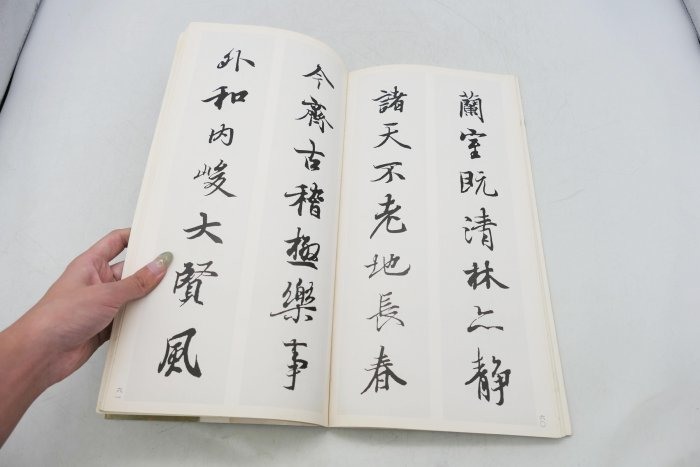 蘭室既清林亦静
諸天不老地長春
六〇
今齋古稽極樂事
外和内峻大賢風
六一